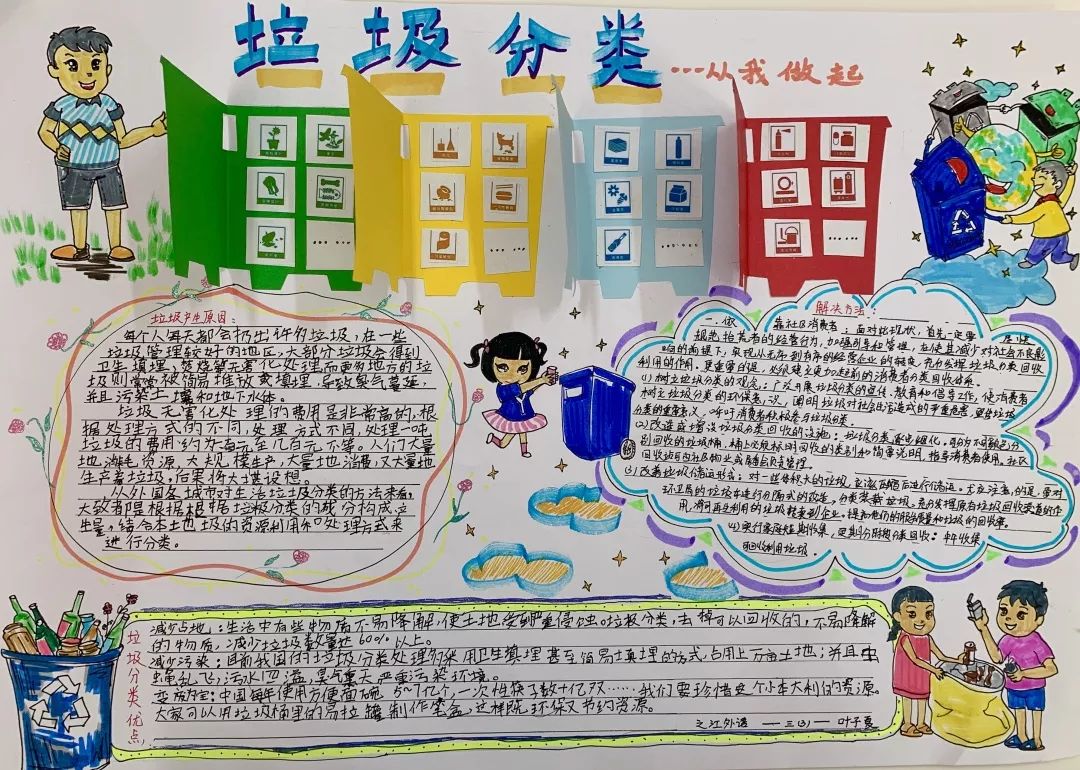 垃圾分类
...从我做起
垃圾产生原因:
每个人每天都会扔出许多垃圾,在一些
垃圾管理较好的地区,大部分垃圾会得到
卫生填埋,焚烧等无害化处理,而更多地方的垃
圾则常常被简易堆放或填埋,导致臭气蔓延,
并且污染土壤和地下水体。
垃圾无害化处理的费用是非常高的,根
据处理方式的不同,处理方式不同,处理一吨
垃圾的费用约为一百元至几百元不等。人们大量
地消耗资源,大规模生产,大量地消费,又大量地
生产着垃圾,后果将不堪设想。
从外国各城市对生活垃圾分类的方法来看,
大致都是根据根据垃圾分类的成分构成,产
生量,结合本土地垃圾的资源利用和处理方式来
进行分类。
解决方法:
靠社区消费者:面对垃圾现状,首先一定要
规范拾荒者的经营行为,加强引导和管理,
的前提下,实现从无序到有序的经营企业的转变,充分发挥垃圾分类回收
利用的作用。更重要的是,
(1)树立垃圾分类的观念:广泛开展垃圾分类的宣传、教育和倡导工作,使消费者
树立垃圾分类的环保意识,阐明垃圾对社会生活造成的严重危害,宣传垃圾
分类的重要意义,呼吁消费者积极参与垃圾分类。
(2)改造或增设垃圾分类回收的设施:
别回收的垃圾桶,
(3)改善垃圾储运形式:对一些体积大的垃圾,应该压缩后进行储运。尤应注意的是,要对
环卫局的垃圾车进行分隔式的改造,分类装载垃圾。充分发挥原有垃圾回收渠道的作
用,将可再生利用的垃圾转卖到企业。
(4)实行家庭短期收集,定期分时段分类回收:
回收利用垃圾.
垃圾分类优点
减少占地:生活中有些物质不易降解,使土地受到严重侵蚀。垃圾分类,去掉可以回收的,不易降解
的物质,减少垃圾数量达60%以上。
减少污染:目前我国的垃圾分类处理多采用卫生填埋甚至简易填埋的方式,占用上万亩土地;并且虫
蝇乱飞,污水四溢,臭气熏天,严重污染环境。
变废为宝:中国每年使用方便面碗5~7亿个,一次性筷子数十亿双……我们要珍惜这个小本大利的资源。
大家可以用垃圾桶里的易拉罐制作笔盒,这样既环保,又节约资源。
之江外语 — 三(3) — 叶子夏